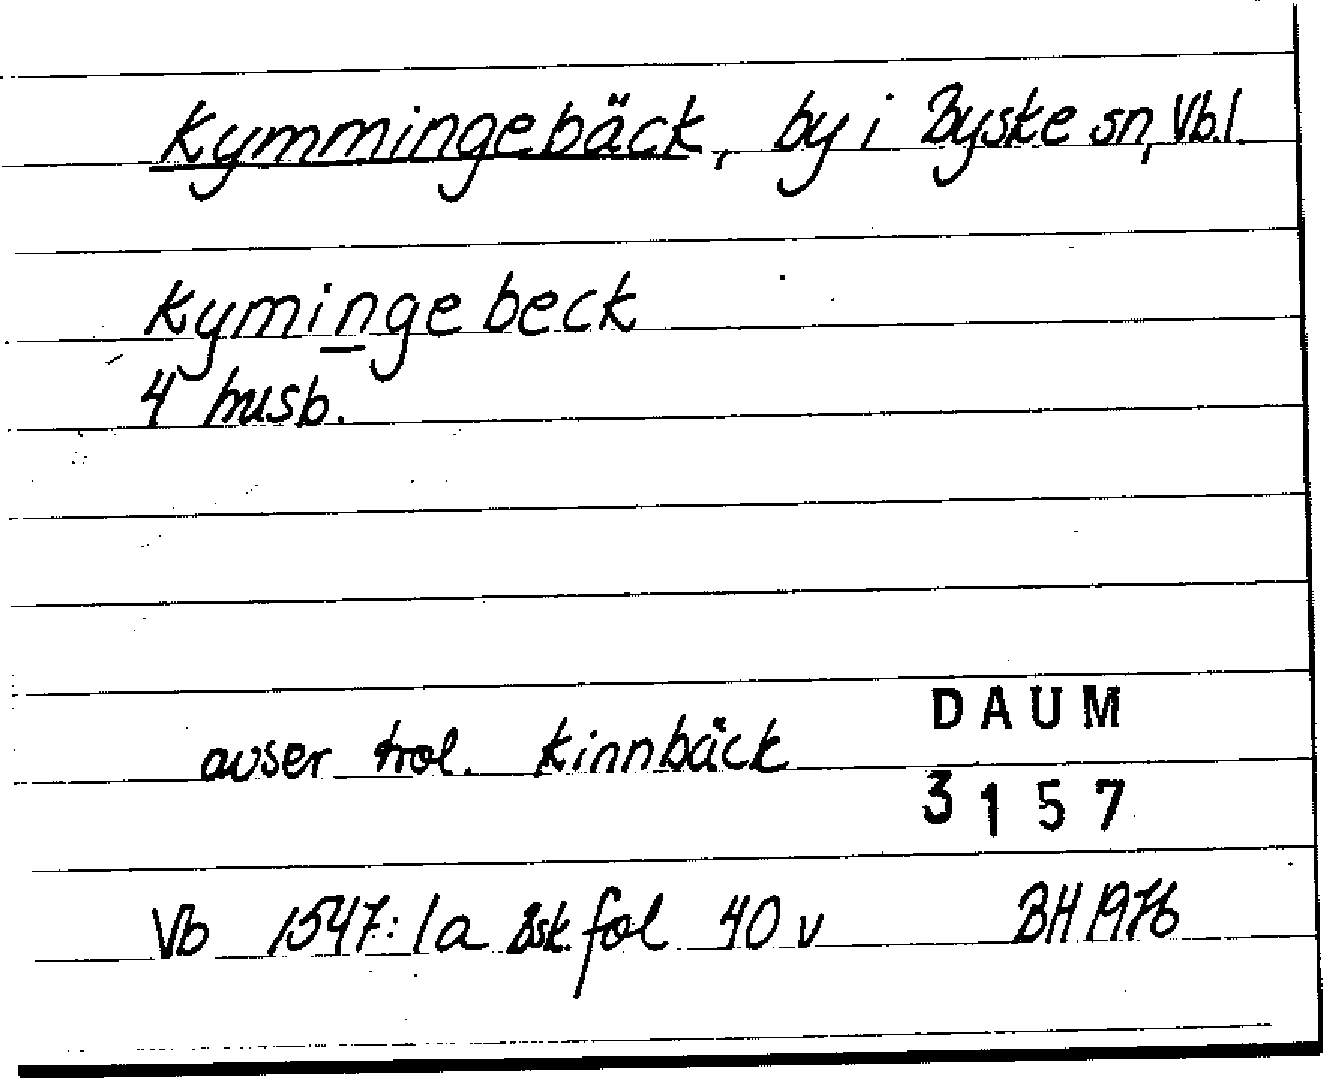 Kymmingebäck, by i Byske sn, Vb.l.
Kymingebeck
4 husb.
avser trol. Kinnbäck
DAUM
3157
Vb 1547:1a Bsk fol 40 v BH 1976